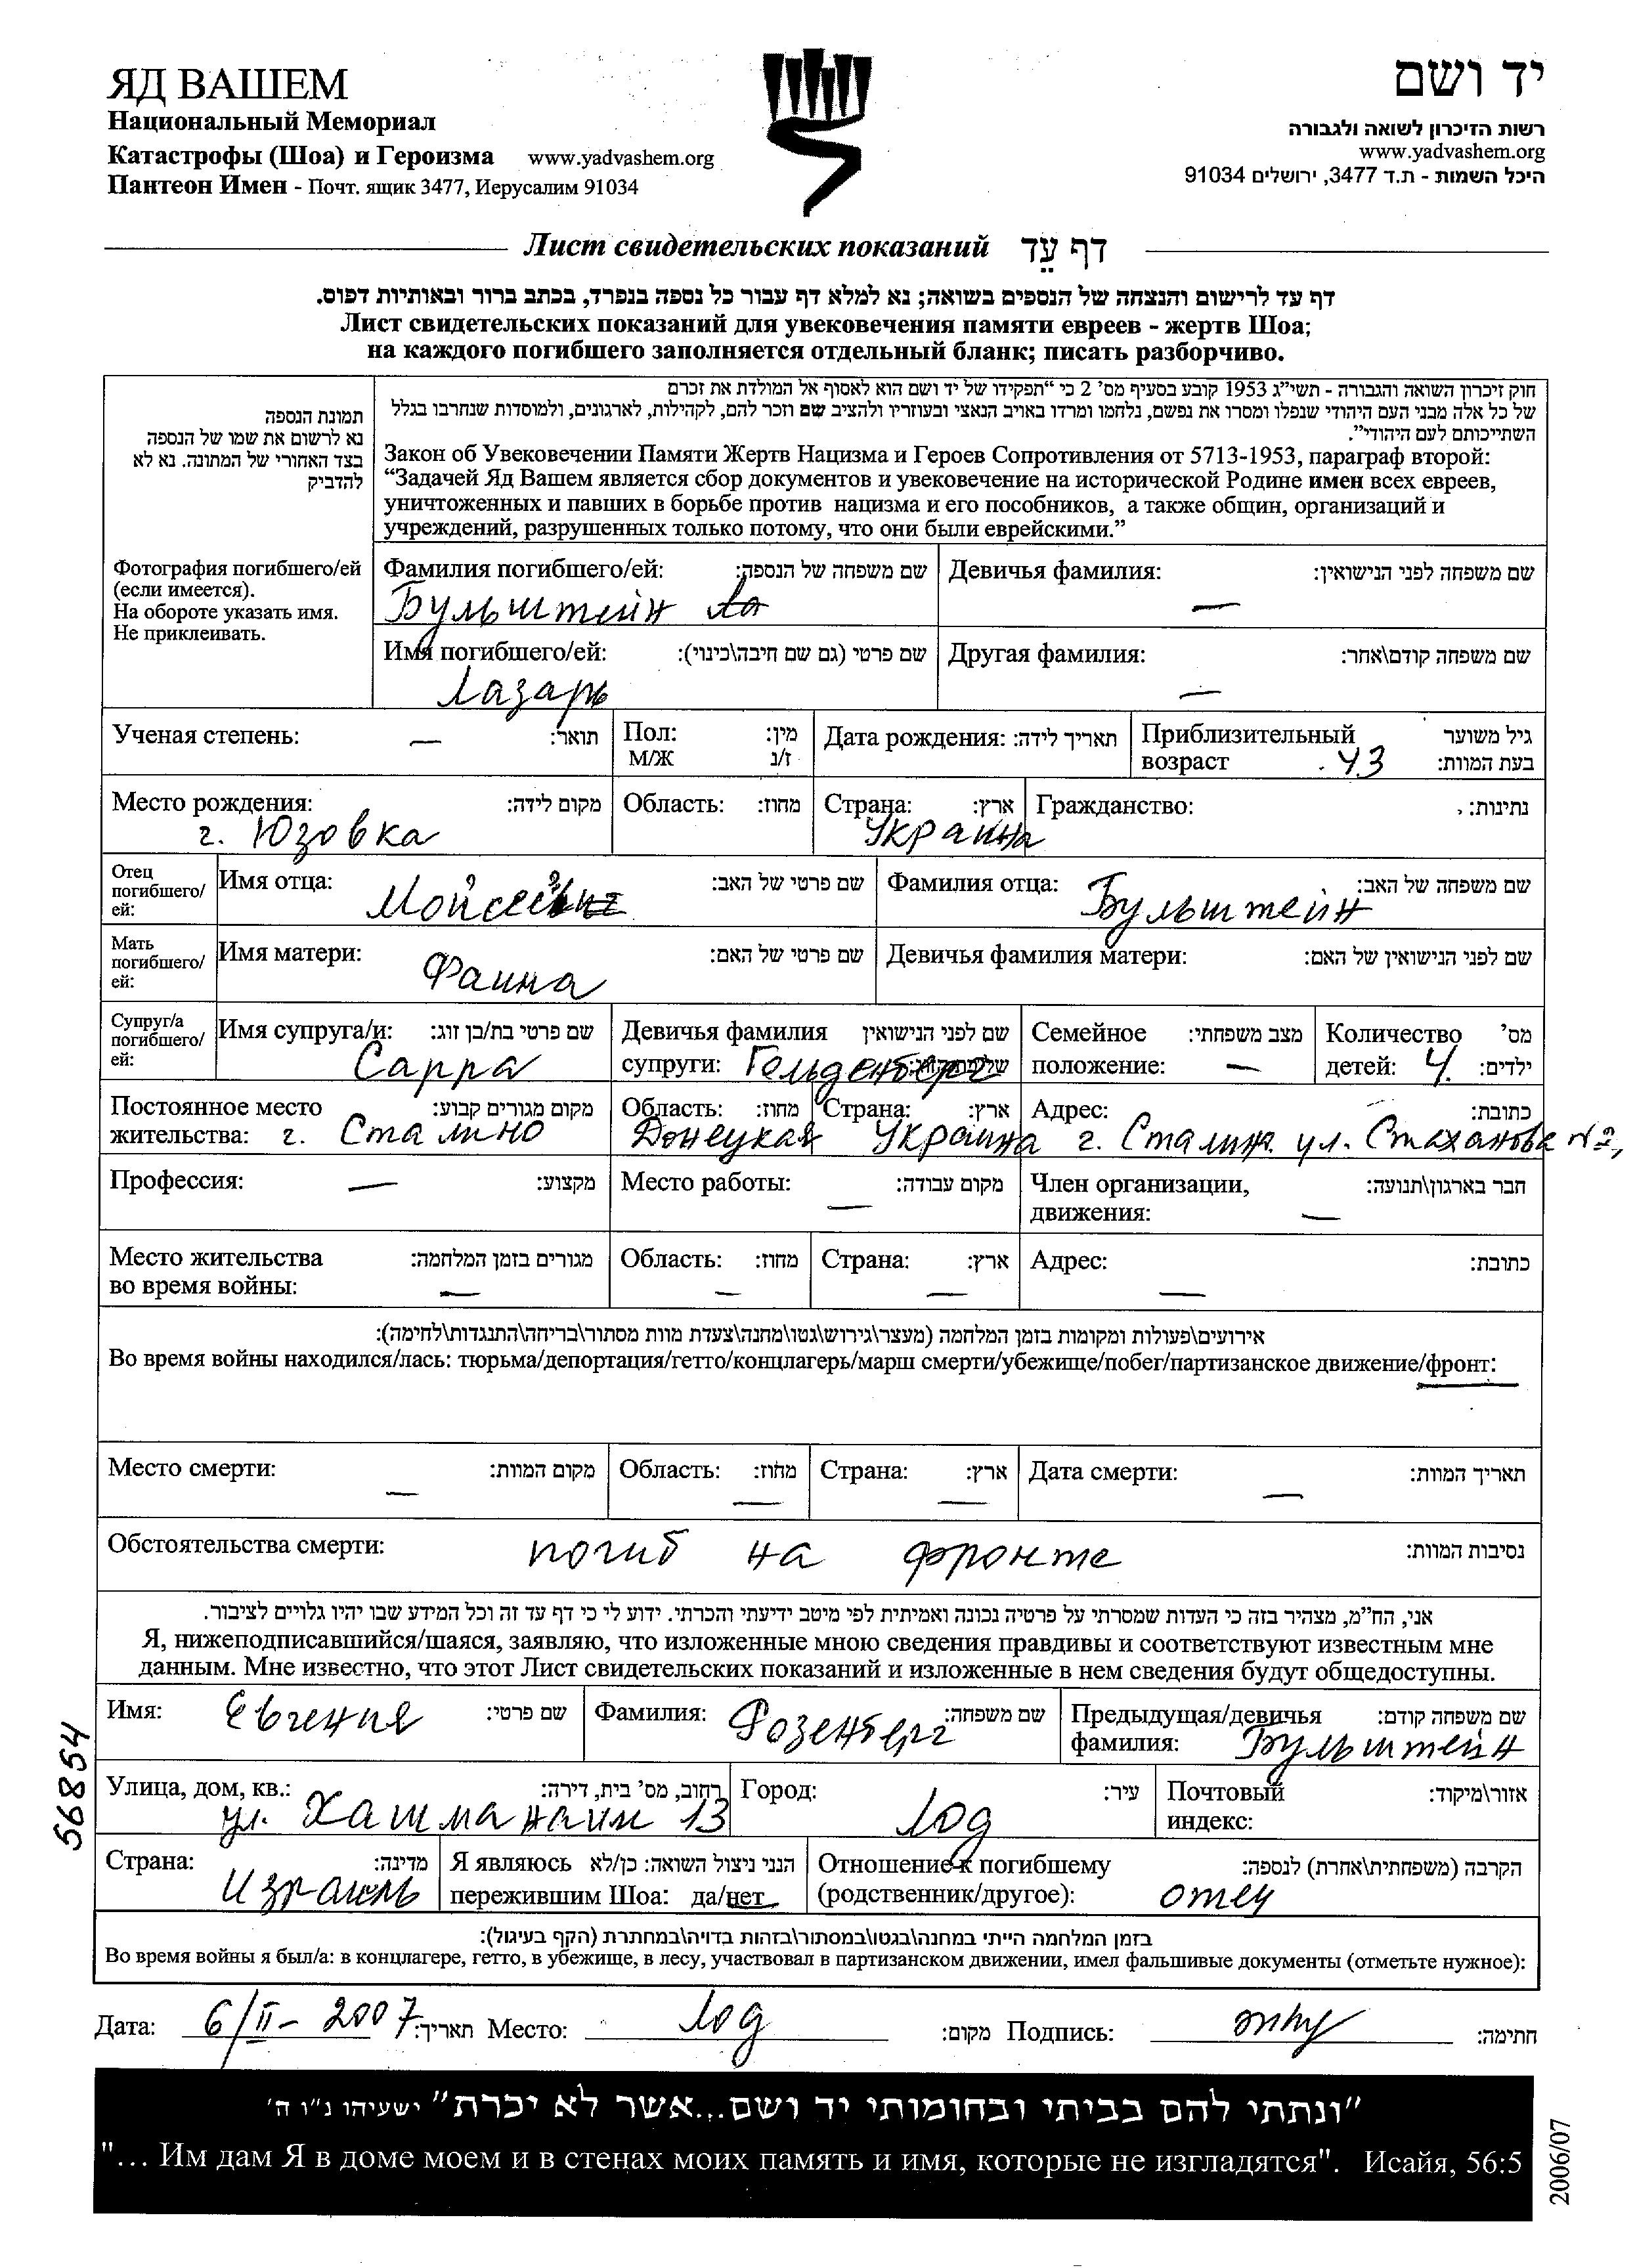 ЯД ВАШЕМ
Национальный Мемориал
Катастрофы (Шоа) и Героизма www.yadvashem.org
Пантеон Имен - Почт. ящик 3477, Иерусалим 91034
יד ושם
רשות הזיכרון לשואה ולגבורה
www.yadvashem.org
היכל השמות - ת.ד 3477, ירושלים 91034
Лист свидетельских показаний דף עֵד
דף עד לרישום והנצחה של הנספים בשואה; נא למלא דף עבור כל נספה בנפרד, בכתב ברור ובאותיות דפוס.
Лист свидетельских показаний для увековечения памяти евреев - жертв Шоа;
на каждого погибшего заполняется отдельный бланк; писать разборчиво.
תמונת הנספה
נא לרשום את שמו של הנספה
בצד האחורי של התמונה. נא לא
להדביק
Фотография погибшего/ей
(если имеется).
На обороте указать имя.
Не приклеивать.
חוק זיכרון השואה והגבורה - תשי"ג 1953 קובע בסעיף מס' 2 כי "תפקידו של יד ושם הוא לאסוף אל המולדת את זכרם
של כל אלה מבני העם היהודי שנפלו ומסרו את נפשם, נלחמו ומרדו באויב הנאצי ובעוזריו ולהציב שם וזכר להם, לקהילות, לארגונים, ולמוסדות שנחרבו בגלל
השתייכותם לעם היהודי".
Закон об Увековечении Памяти Жертв Нацизма и Героев Сопротивления от 5713-1953, параграф второй:
“Задачей Яд Вашем является сбор документов и увековечение на исторической Родине имен всех евреев,
уничтоженных и павших в борьбе против нацизма и его пособников, а также общин, организаций и
учреждений, разрушенных только потому, что они были еврейскими.”
Фамилия погибшего/ей: שם משפחה של הנספה:
Бульштейн Ла
Девичья фамилия: שם משפחה לפני הנישואין:
—
Имя погибшего/ей: שם פרטי (גם שם חיבה\כינוי):
Лазарь
Другая фамилия: שם משפחה קודם\אחר:
—
Ученая степень: — תואר:
Пол: מין:
М/Ж ז/נ
Дата рождения: תאריך לידה:
Приблизительный גיל משוער
возраст 43 בעת המוות:
Место рождения: מקום לידה:
г. Юзовка
Область: מחוז:
Страна: ארץ:
Украина
Гражданство: נתינות:
Отец
погибшего/
ей:
Имя отца: שם פרטי של האב:
Мойсей
Фамилия отца: שם משפחה של האב:
Бульштейн
Мать
погибшего/
ей:
Имя матери: שם פרטי של האם:
Фаина
Девичья фамилия матери: שם לפני הנישואין של האם:
Супруг/а
погибшего/
ей:
Имя супруга/и: שם פרטי בת/בן זוג:
Сарра
Девичья фамилия שם לפני הנישואין
супруги: Гельденберг
Семейное מצב משפחתי:
положение: —
Количество מס'
детей: 4. ילדים:
Постоянное место מקום מגורים קבוע:
жительства: г. Сталино
Область: מחוז:
Донецкая
Страна: ארץ:
Украина
Адрес: כתובת:
г. Сталино. ул. Стаханова №2,
Профессия: — מקצוע:
Место работы: מקום עבודה:
—
Член организации, חבר בארגון\תנועה:
движения: —
Место жительства מגורים בזמן המלחמה:
во время войны: —
Область: מחוז:
—
Страна: ארץ:
—
Адрес: כתובת:
—
אירועים\פעולות ומקומות בזמן המלחמה (מעצר\גירוש\גטו\מחנה\צעדת מוות מסתור\בריחה\התנגדות\לחימה):
Во время войны находился/лась: тюрьма/депортация/гетто/концлагерь/марш смерти/убежище/побег/партизанское движение/фронт:
Место смерти: מקום המוות:
—
Область: מחוז:
—
Страна: ארץ:
—
Дата смерти: תאריך המוות:
—
Обстоятельства смерти: погиб на фронте נסיבות המוות:
אני, הח"מ, מצהיר בזה כי העדות שמסרתי על פרטיה נכונה ואמיתית לפי מיטב ידיעתי והכרתי. ידוע לי כי דף עד זה וכל המידע שבו יהיו גלויים לציבור.
Я, нижеподписавшийся/шаяся, заявляю, что изложенные мною сведения правдивы и соответствуют известным мне
данным. Мне известно, что этот Лист свидетельских показаний и изложенные в нем сведения будут общедоступны.
Имя: Евгения שם פרטי:
Фамилия: Розенберг שם משפחה:
Предыдущая/девичья שם משפחה קודם:
фамилия: Бульштейн
Улица, дом, кв.: רחוב, מס' בית, דירה:
ул. Хашманаим 13
Город: עיר:
Лод
Почтовый אזור\מיקוד:
индекс:
Страна: מדינה:
Израиль
Я являюсь הנני ניצול השואה: כן/לא
пережившим Шоа: да/нет
Отношение к погибшему הקרבה (משפחתית\אחרת) לנספה:
(родственник/другое): отец
בזמן המלחמה הייתי במחנה\בגטו\במסתור\בזהות בדויה\במחתרת (הקף בעיגול):
Во время войны я был/а: в концлагере, гетто, в убежище, в лесу, участвовал в партизанском движении, имел фальшивые документы (отметьте нужное):
Дата: 6/II- 2007 תאריך: Место: Лод מקום: Подпись: חתימה:
"ונתתי להם בביתי ובחומותי יד ושם...אשר לא יכרת" ישעיהו נ"ו ה'
"... Им дам Я в доме моем и в стенах моих память и имя, которые не изгладятся". Исайя, 56:5
56854
2006/07